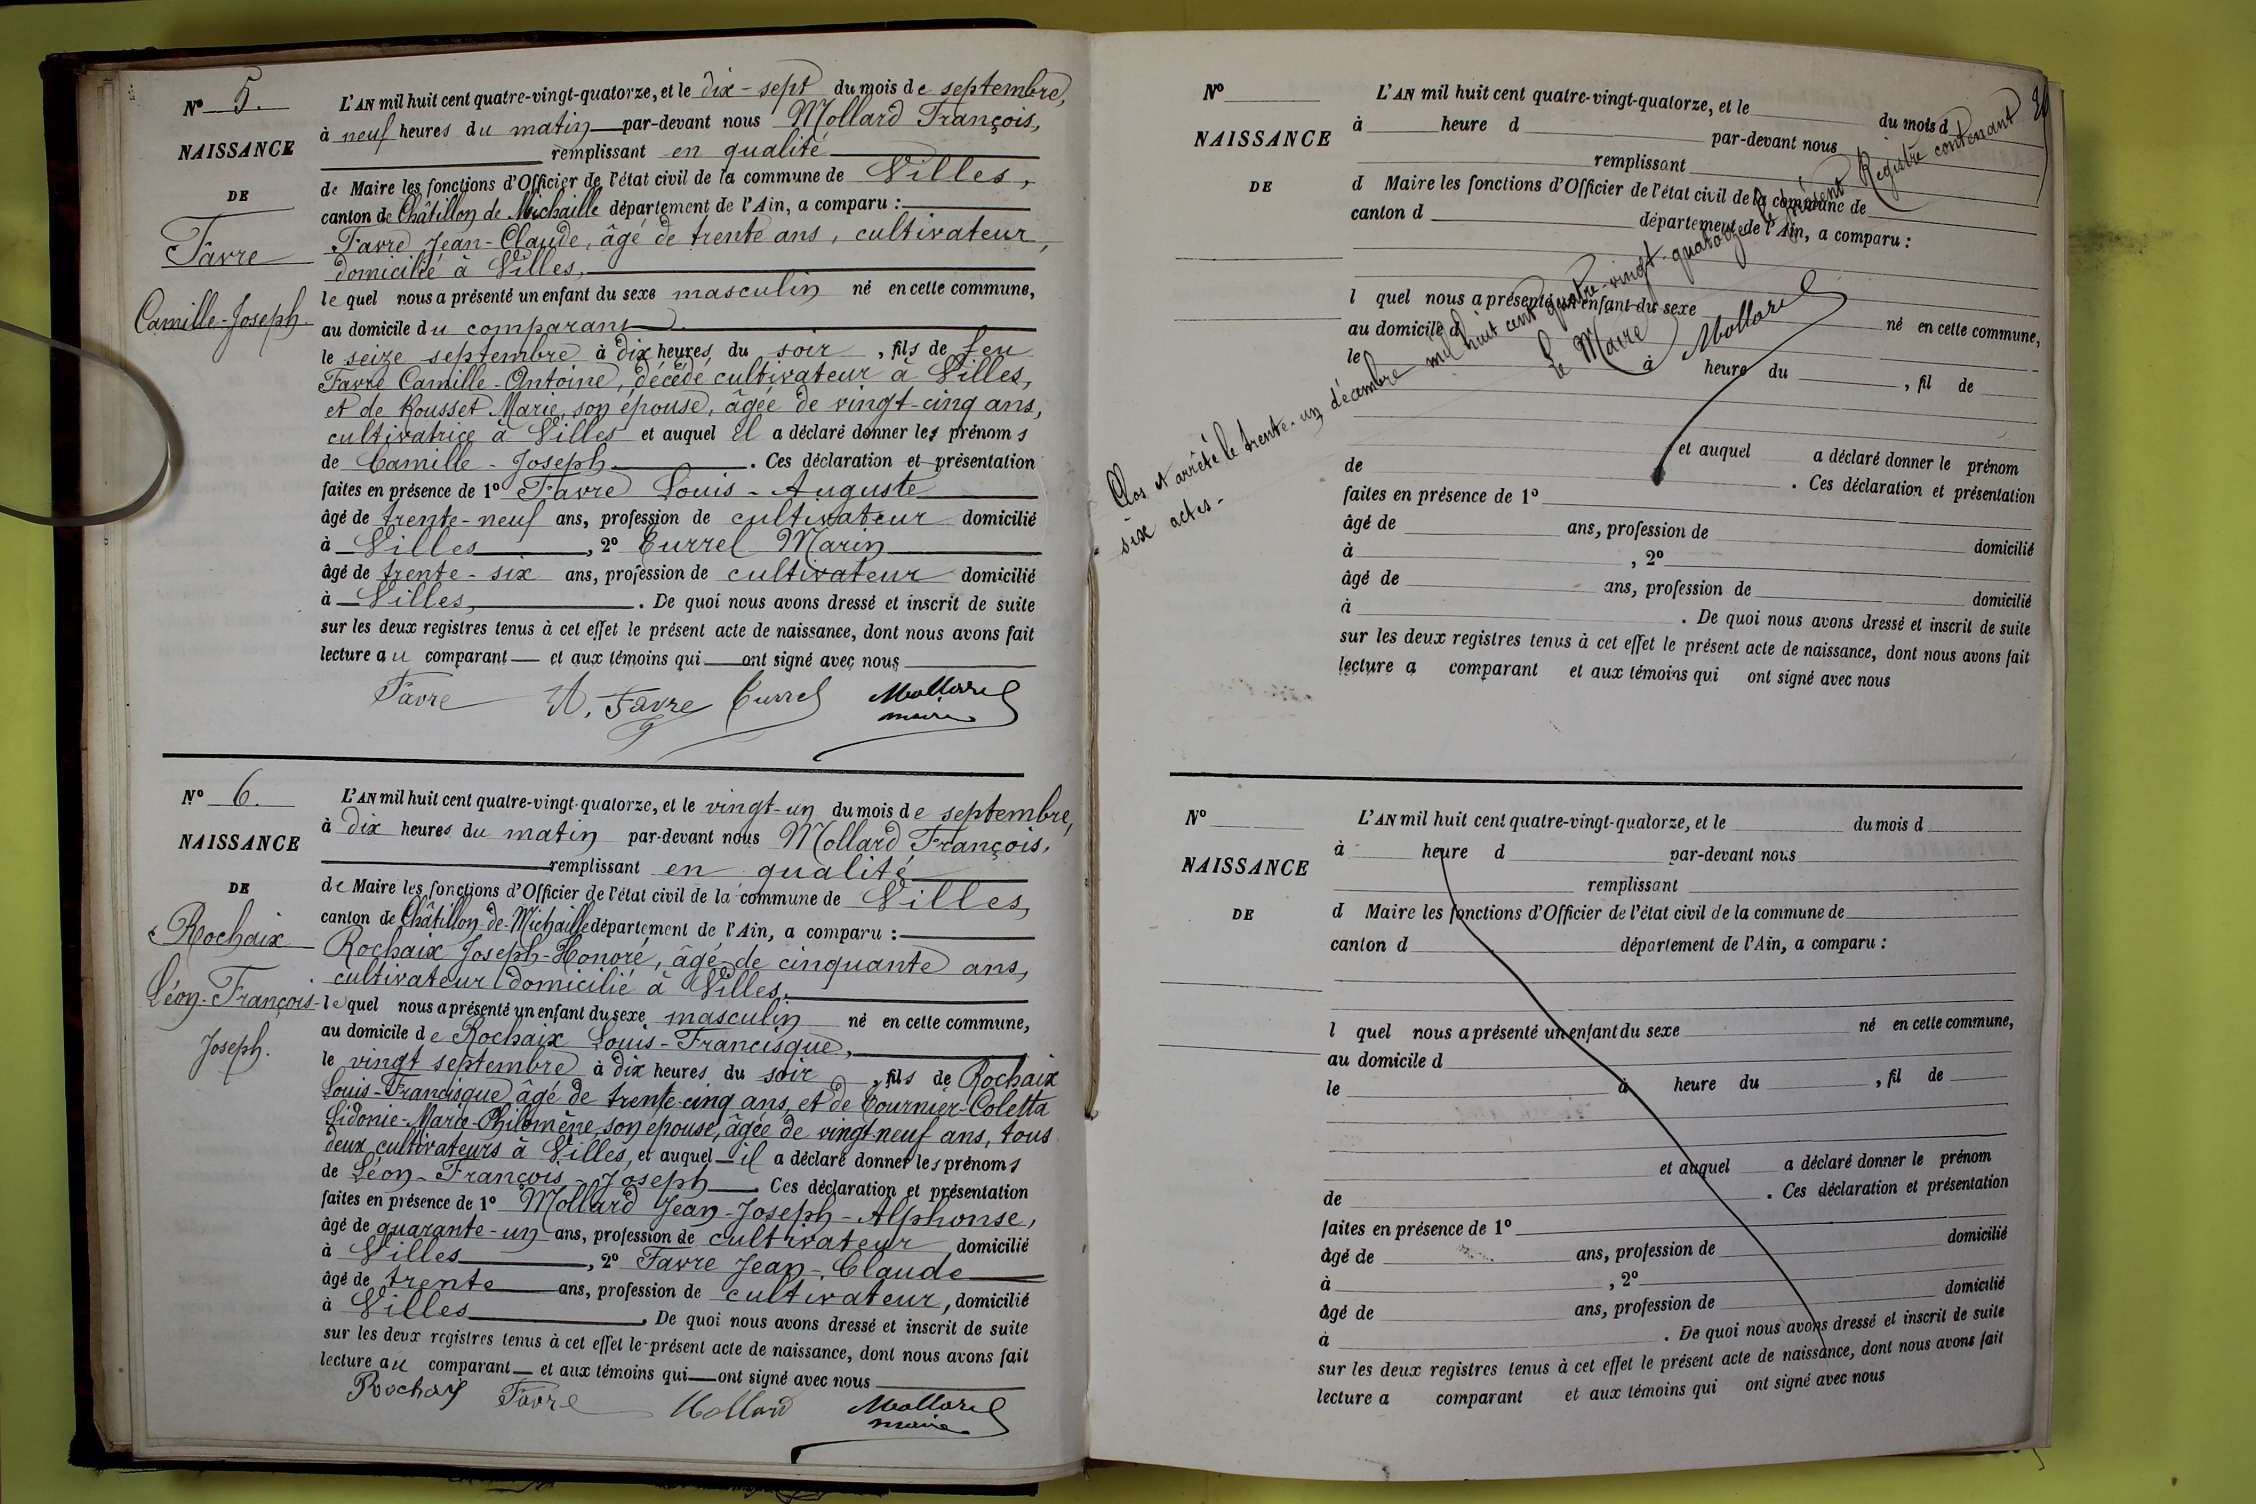 Nº 5.
NAISSANCE
DE
Favre
Camille-Joseph.
L'AN mil huit cent quatre-vingt-quatorze, et le dix-sept du mois de septembre,
à neuf heures du matin par-devant nous Mollard François,
remplissant en qualité
de Maire les fonctions d'Officier de l'état civil de la commune de Villes,
canton de Châtillon de Michaille département de l'Ain, a comparu :
Favre Jean-Claude, âgé de trente ans, cultivateur,
domicilié à Villes,
lequel nous a présenté un enfant du sexe masculin né en cette commune,
au domicile du comparant
le seize septembre à dix heures du soir, fils de feu
Favre Camille-Antoine, décédé cultivateur à Villes,
et de Rousset Marie, son épouse, âgée de vingt-cinq ans,
cultivatrice à Villes et auquel il a déclaré donner les prénoms
de Camille-Joseph. Ces déclaration et présentation
faites en présence de 1º Favre Louis-Auguste
âgé de trente-neuf ans, profession de cultivateur domicilié
à Villes, 2º Currel Marin
âgé de trente-six ans, profession de cultivateur domicilié
à Villes,. De quoi nous avons dressé et inscrit de suite
sur les deux registres tenus à cet effet le présent acte de naissance, dont nous avons fait
lecture au comparant et aux témoins qui ont signé avec nous
Favre Favre Currel Mollard
maire
Nº 6.
NAISSANCE
DE
Rochaix
Léon-François-
Joseph.
L'AN mil huit cent quatre-vingt-quatorze, et le vingt-un du mois de septembre,
à dix heures du matin par-devant nous Mollard François,
remplissant en qualité
de Maire les fonctions d'Officier de l'état civil de la commune de Villes,
canton de Châtillon-de-Michaille département de l'Ain, a comparu :
Rochaix Joseph-Honoré, âgé de cinquante ans,
cultivateur domicilié à Villes,
lequel nous a présenté un enfant du sexe masculin né en cette commune,
au domicile de Rochaix Louis-Francisque,
le vingt septembre à dix heures du soir, fils de Rochaix
Louis-Francisque âgé de trente-cinq ans, et de Tournier-Coletta
Sidonie-Marie-Philomène, son épouse, âgée de vingt-neuf ans, tous
deux cultivateurs à Villes, et auquel il a déclaré donner les prénoms
de Léon-François-Joseph. Ces déclaration et présentation
faites en présence de 1º Mollard Jean-Joseph-Alphonse,
âgé de quarante-un ans, profession de cultivateur domicilié
à Villes, 2º Favre Jean-Claude
âgé de trente ans, profession de cultivateur, domicilié
à Villes. De quoi nous avons dressé et inscrit de suite
sur les deux registres tenus à cet effet le présent acte de naissance, dont nous avons fait
lecture au comparant et aux témoins qui ont signé avec nous
Rochaix Favre Mollard Mollard
maire
Nº
NAISSANCE
DE
L'AN mil huit cent quatre-vingt-quatorze, et le du mois d
à heure d par-devant nous
remplissant
d Maire les fonctions d'Officier de l'état civil de la commune de
canton d département de l'Ain, a comparu :
l quel nous a présenté un enfant du sexe né en cette commune,
au domicile d
le à heure du , fil de
et auquel a déclaré donner le prénom
de . Ces déclaration et présentation
faites en présence de 1º
âgé de ans, profession de domicilié
à , 2º
âgé de ans, profession de domicilié
à . De quoi nous avons dressé et inscrit de suite
sur les deux registres tenus à cet effet le présent acte de naissance, dont nous avons fait
lecture a comparant et aux témoins qui ont signé avec nous
Clos et arrêté le trente-un décembre mil huit cent quatre-vingt-quatorze le présent Registre contenant
six actes.
Le Maire
Mollard
Nº
NAISSANCE
DE
L'AN mil huit cent quatre-vingt-quatorze, et le du mois d
à heure d par-devant nous
remplissant
d Maire les fonctions d'Officier de l'état civil de la commune de
canton d département de l'Ain, a comparu :
l quel nous a présenté un enfant du sexe né en cette commune,
au domicile d
le à heure du , fil de
et auquel a déclaré donner le prénom
de . Ces déclaration et présentation
faites en présence de 1º
âgé de ans, profession de domicilié
à , 2º
âgé de ans, profession de domicilié
à . De quoi nous avons dressé et inscrit de suite
sur les deux registres tenus à cet effet le présent acte de naissance, dont nous avons fait
lecture a comparant et aux témoins qui ont signé avec nous